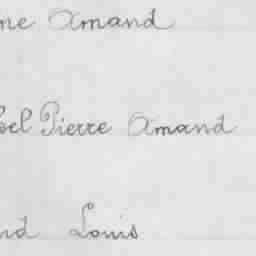 ne Amand
el Pierre Amand
nd Louis